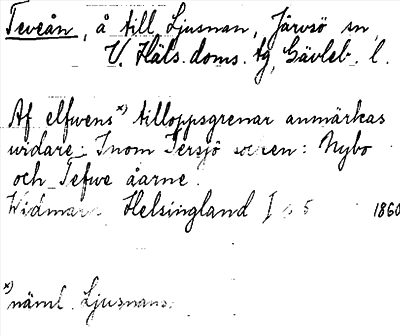 Teveån, å till Ljusnan, Järvsö sn,
V. Häls. doms. tg, Gävleb. l.
Af elfwens x) tilloppsgrenar anmärkas
widare: Inom Jersjö socken: Nybo
och Tefwe åarne.
Widmark Helsingland I s 5 1860
x) näml. Ljusnans.